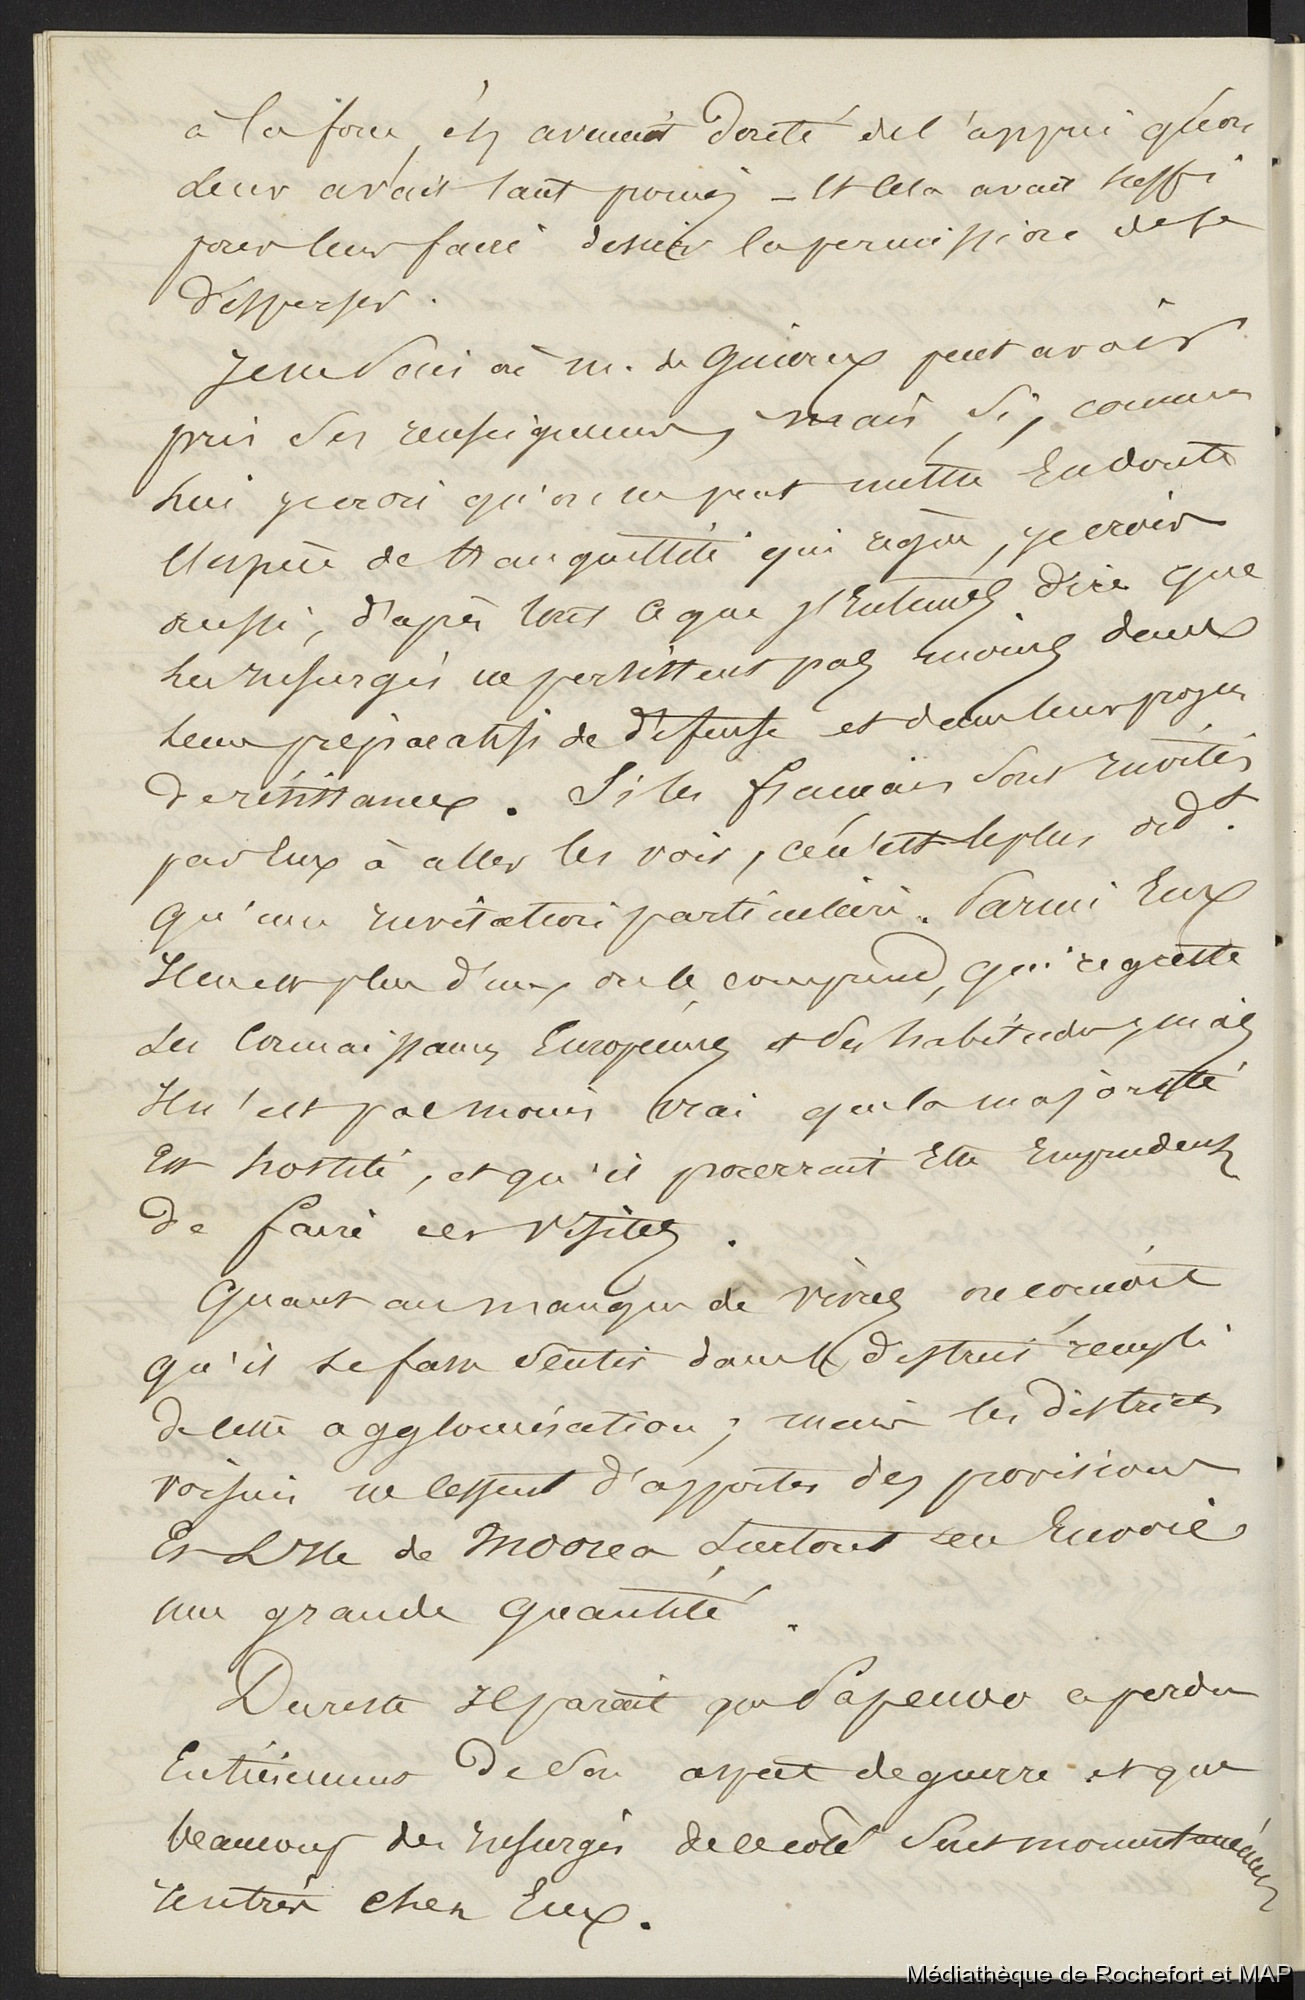 à la force, ils avaient douté de l'appui qu'on
leur avait tant promis – Et cela avait suffi
pour leur faire désirer la permission de se
disperser.
Je ne sais où M. de Guiroux peut avoir
pris ses renseignemens, mais si, comme
lui je crois qu'on ne peut mettre en doute
l'espèce de tranquillité qui règne, je crois
aussi, d'après tout ce que j'entends dire que
les insurgés ne persistent pas moins dans
leurs préparatifs de défense et dans leurs projets
de résistance. Si les français sont invités
par eux à aller les voir, ce n'est le plus ord.t
qu'une invitation particulière. Parmi eux
il en est plus d'un, on le comprend, qui regrette
ses connaissances Européennes et ses habitudes, mais
il n'est pas moins vrai que la majorité
est hostile, et qu'il pourrait être imprudent
de faire ces visites.
Quant au manque de vivres on conçoit
qu'il se fasse sentir dans le district rempli
de cette agglomération ; mais les districts
voisins ne cessent d'apporter des provisions
Et l'Ile de Moorea surtout en envoie
une grande quantité.
Du reste il paraît que Papenoo a perdu
entièrement de son aspect de guerre et que
beaucoup des insurgés de ce côté sont momentanément
rentrés chez eux.
Médiathèque de Rochefort et MAP